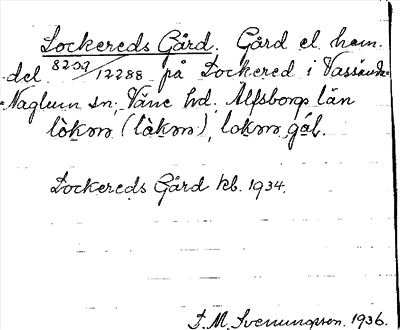 Lockereds Gård. Gård el. hem.
del 8259/12288 på Lockered i Vassända-
-Naglum sn, Väne hd, Älfsborgs län
Lockereds Gård kb. 1934.
D. M. Svenungsson. 1936.